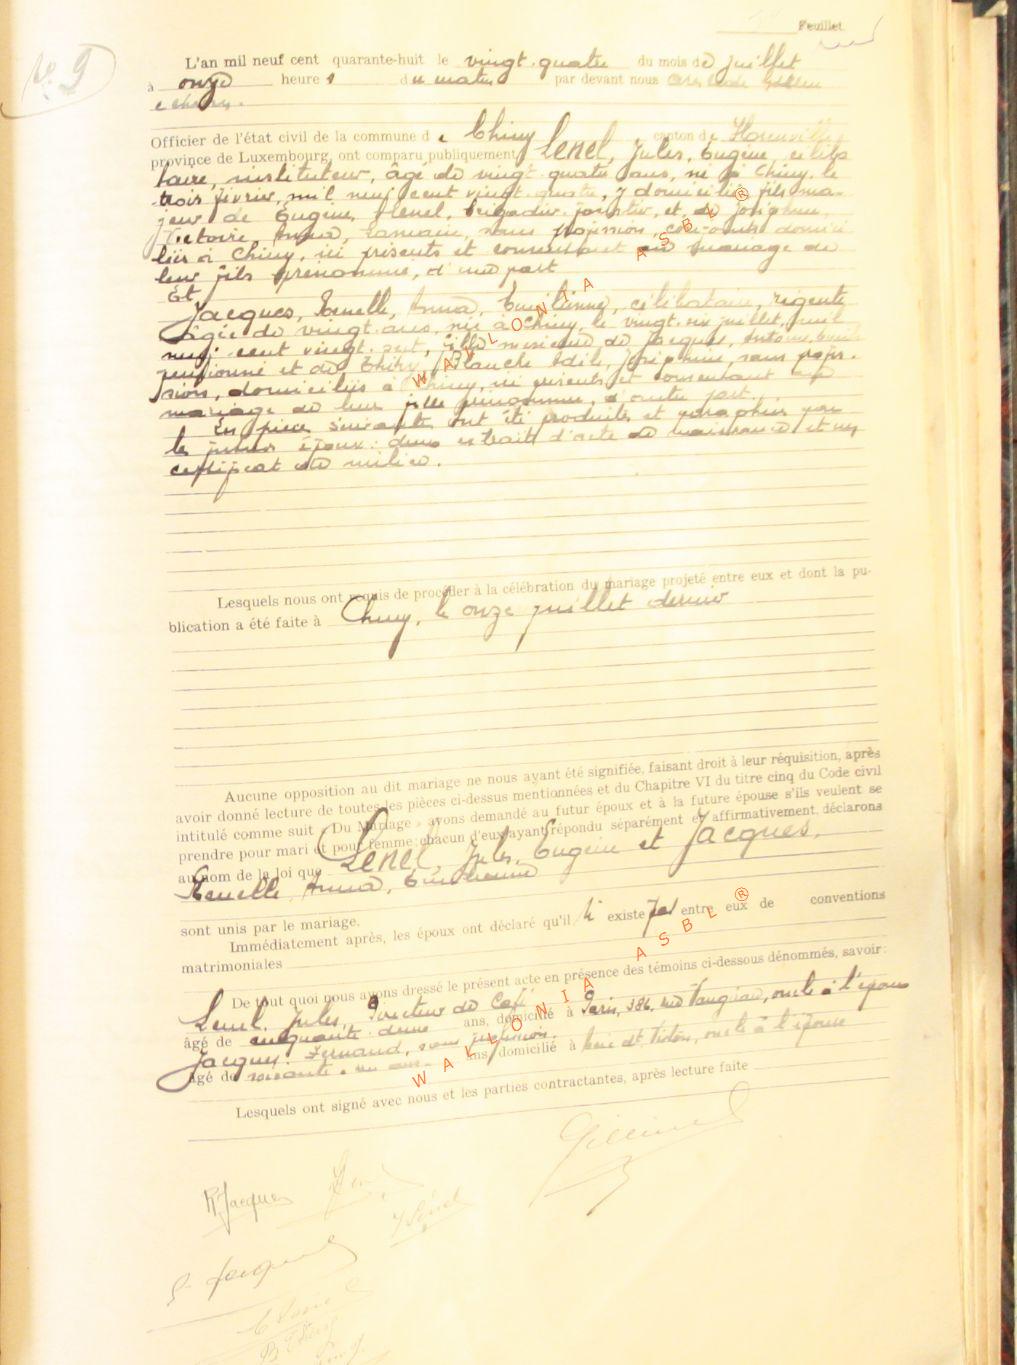 Feuillet
N° 9
L'an mil neuf cent quarante-huit le vingt-quatre du mois de juillet
à onze heures du matin par devant nous
Officier de l'état civil de la commune de Chiny canton de Florenville
province de Luxembourg, ont comparu publiquement Lenel, Jules, Eugène, céliba
taire, instituteur, âgé de vingt-quatre ans, né à Chiny, le
trois février, mil neuf cent vingt-quatre, y domicilié, fils ma-
jeur de Eugène, Lenel, brigadier forestier, et de Joséphine,
Victoire, Anna, sans profession, conjoints domici
liés à Chiny, ici présents et consentant au mariage de
leur fils prénommé, d'une part
Et
Jacques, Renelle, Anna, Emilienne, célibataire, régente
âgée de vingt ans, née à Chiny, le vingt-six juillet, mil
neuf cent vingt-sept, fille mineure de Jacques, Antoine,
pensionné et de Thiry, Blanche Adile, Joséphine, sans profes-
sion, domiciliés à Chiny, ici présents et consentant au
mariage de leur fille prénommée, d'autre part.
Les pièces suivantes ont été produites et paraphées par
les futurs époux: deux extraits d'acte de naissance et un
certificat de milice.
Lesquels nous ont requis de procéder à la célébration du mariage projeté entre eux et dont la pu-
blication a été faite à Chiny, le onze juillet dernier
Aucune opposition au dit mariage ne nous ayant été signifiée, faisant droit à leur réquisition, après
avoir donné lecture de toutes les pièces ci-dessus mentionnées et du Chapitre VI du titre cinq du Code civil
intitulé comme suit « Du Mariage » avons demandé au futur époux et à la future épouse s'ils veulent se
prendre pour mari et pour femme; chacun d'eux ayant répondu séparément et affirmativement, déclarons
au nom de la loi que Lenel, Jules, Eugène et Jacques,
Renelle, Anna, Emilienne
sont unis par le mariage.
Immédiatement après, les époux ont déclaré qu'il n'existe pas entre eux de conventions
matrimoniales
De tout quoi nous avons dressé le présent acte en présence des témoins ci-dessous dénommés, savoir:
Lenel, Jules, Directeur de Café
âgé de cinquante-deux ans, domicilié à Paris, 386, rue Vaugirard, oncle à l'époux
Jacques, Fernand, sans profession
âgé de soixante et un ans domicilié à oncle à l'épouse
Lesquels ont signé avec nous et les parties contractantes, après lecture faite
R. Jacques
J Lenel
Jacques
WALLONIA ASBL ®
WALLONIA ASBL ®